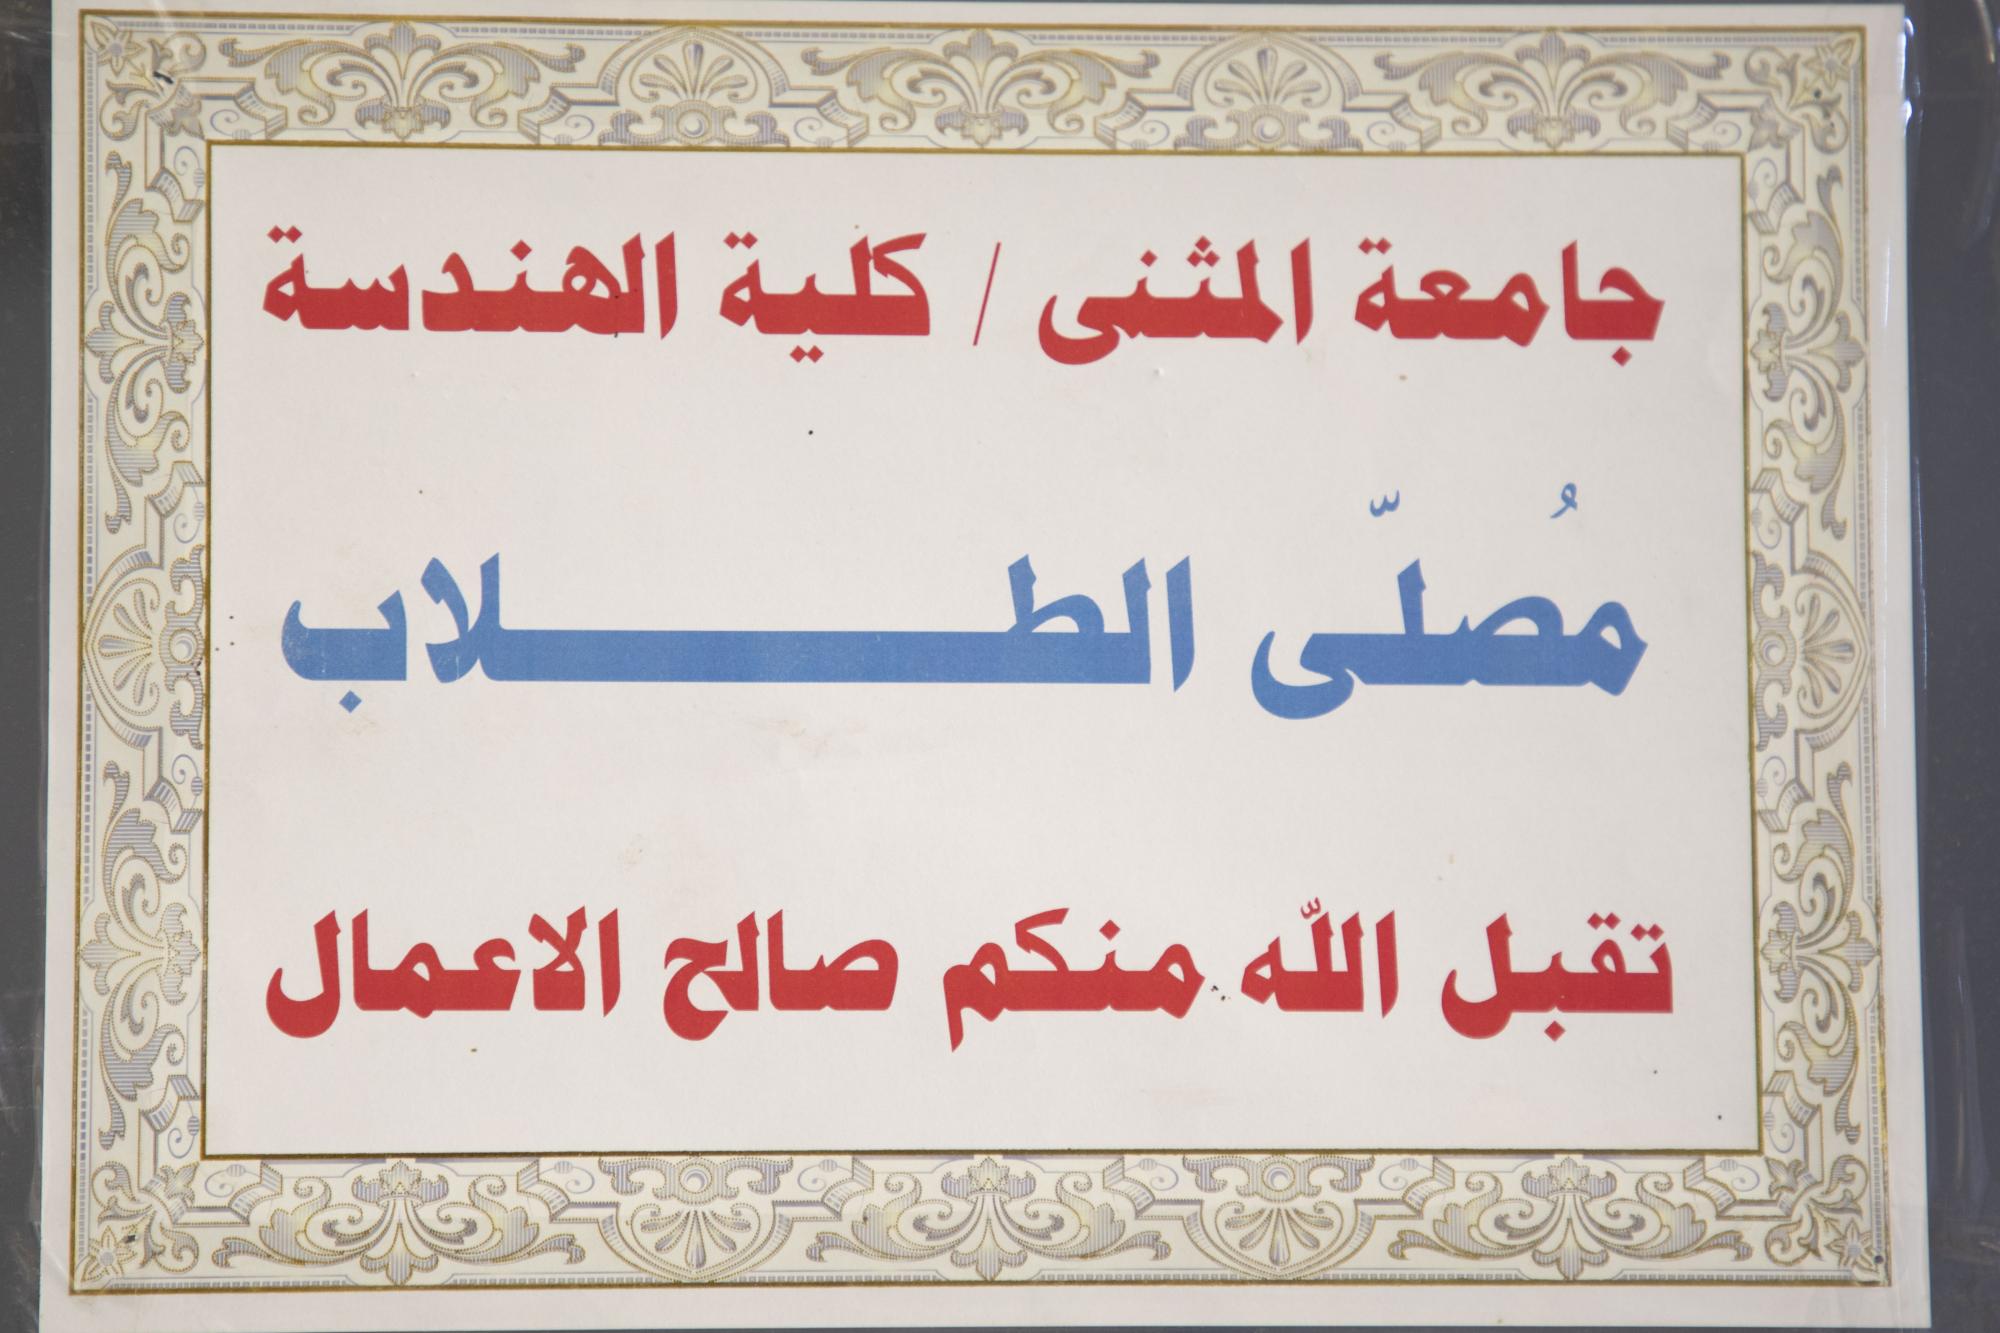 جامعة المثنى / كلية الهندسة
مُصلّى الطـــــــــلاب
تقبل اللّه منكم صالح الاعمال